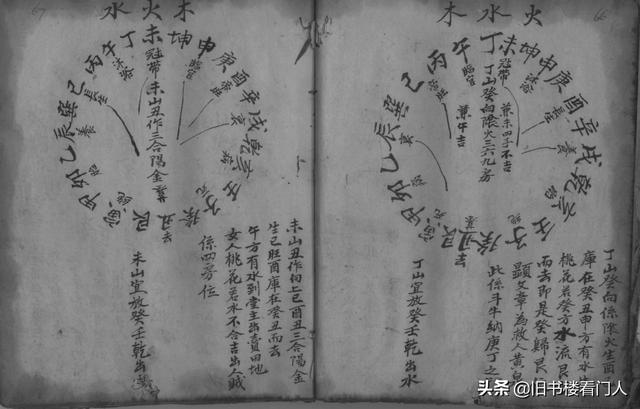 66
火水木
丁未坤申庚酉辛戌乾亥壬子癸丑艮寅甲卯乙辰巽巳丙午
冠帶
臨官
養
丁山癸向陰火三六九房
兼未四子不吉
兼午吉
去
丁山癸向係陰火生酉
庫在癸丑申方有水
桃花若癸方水流艮
而去即是癸歸艮
顯文章為救人黃白
此係斗牛納庚丁之
丁山宜放癸壬乾出水
67
木火水
丁未坤申庚酉辛戌乾亥壬子癸丑艮寅甲卯乙辰巽巳丙午
沐浴
冠帶
臨官
衰
長生
養
未山丑作三合陽金
去
未山丑作向上巳酉丑三合陽金
生巳旺酉庫在癸丑而去
午方有水到堂主出賣田地
女人桃花若水不合吉出人賊
係四房位
未山宜放癸壬乾出
头条 @旧书楼看门人